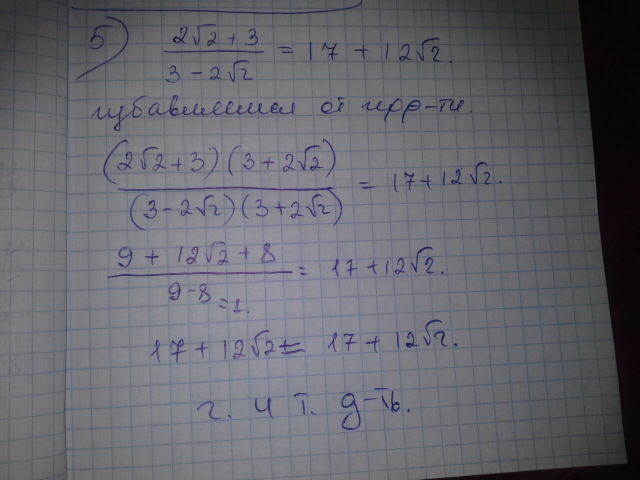 5) (2√2 + 3)/(3 - 2√2) = 17 + 12√2.
избавимся от ирр-ти.
(2√2+3)(3+2√2)/(3-2√2)(3+2√2) = 17+12√2.
9 + 12√2 + 8/9-8=1. = 17+12√2.
17 + 12√2 = 17 + 12√2.
ч. т. д-ть.